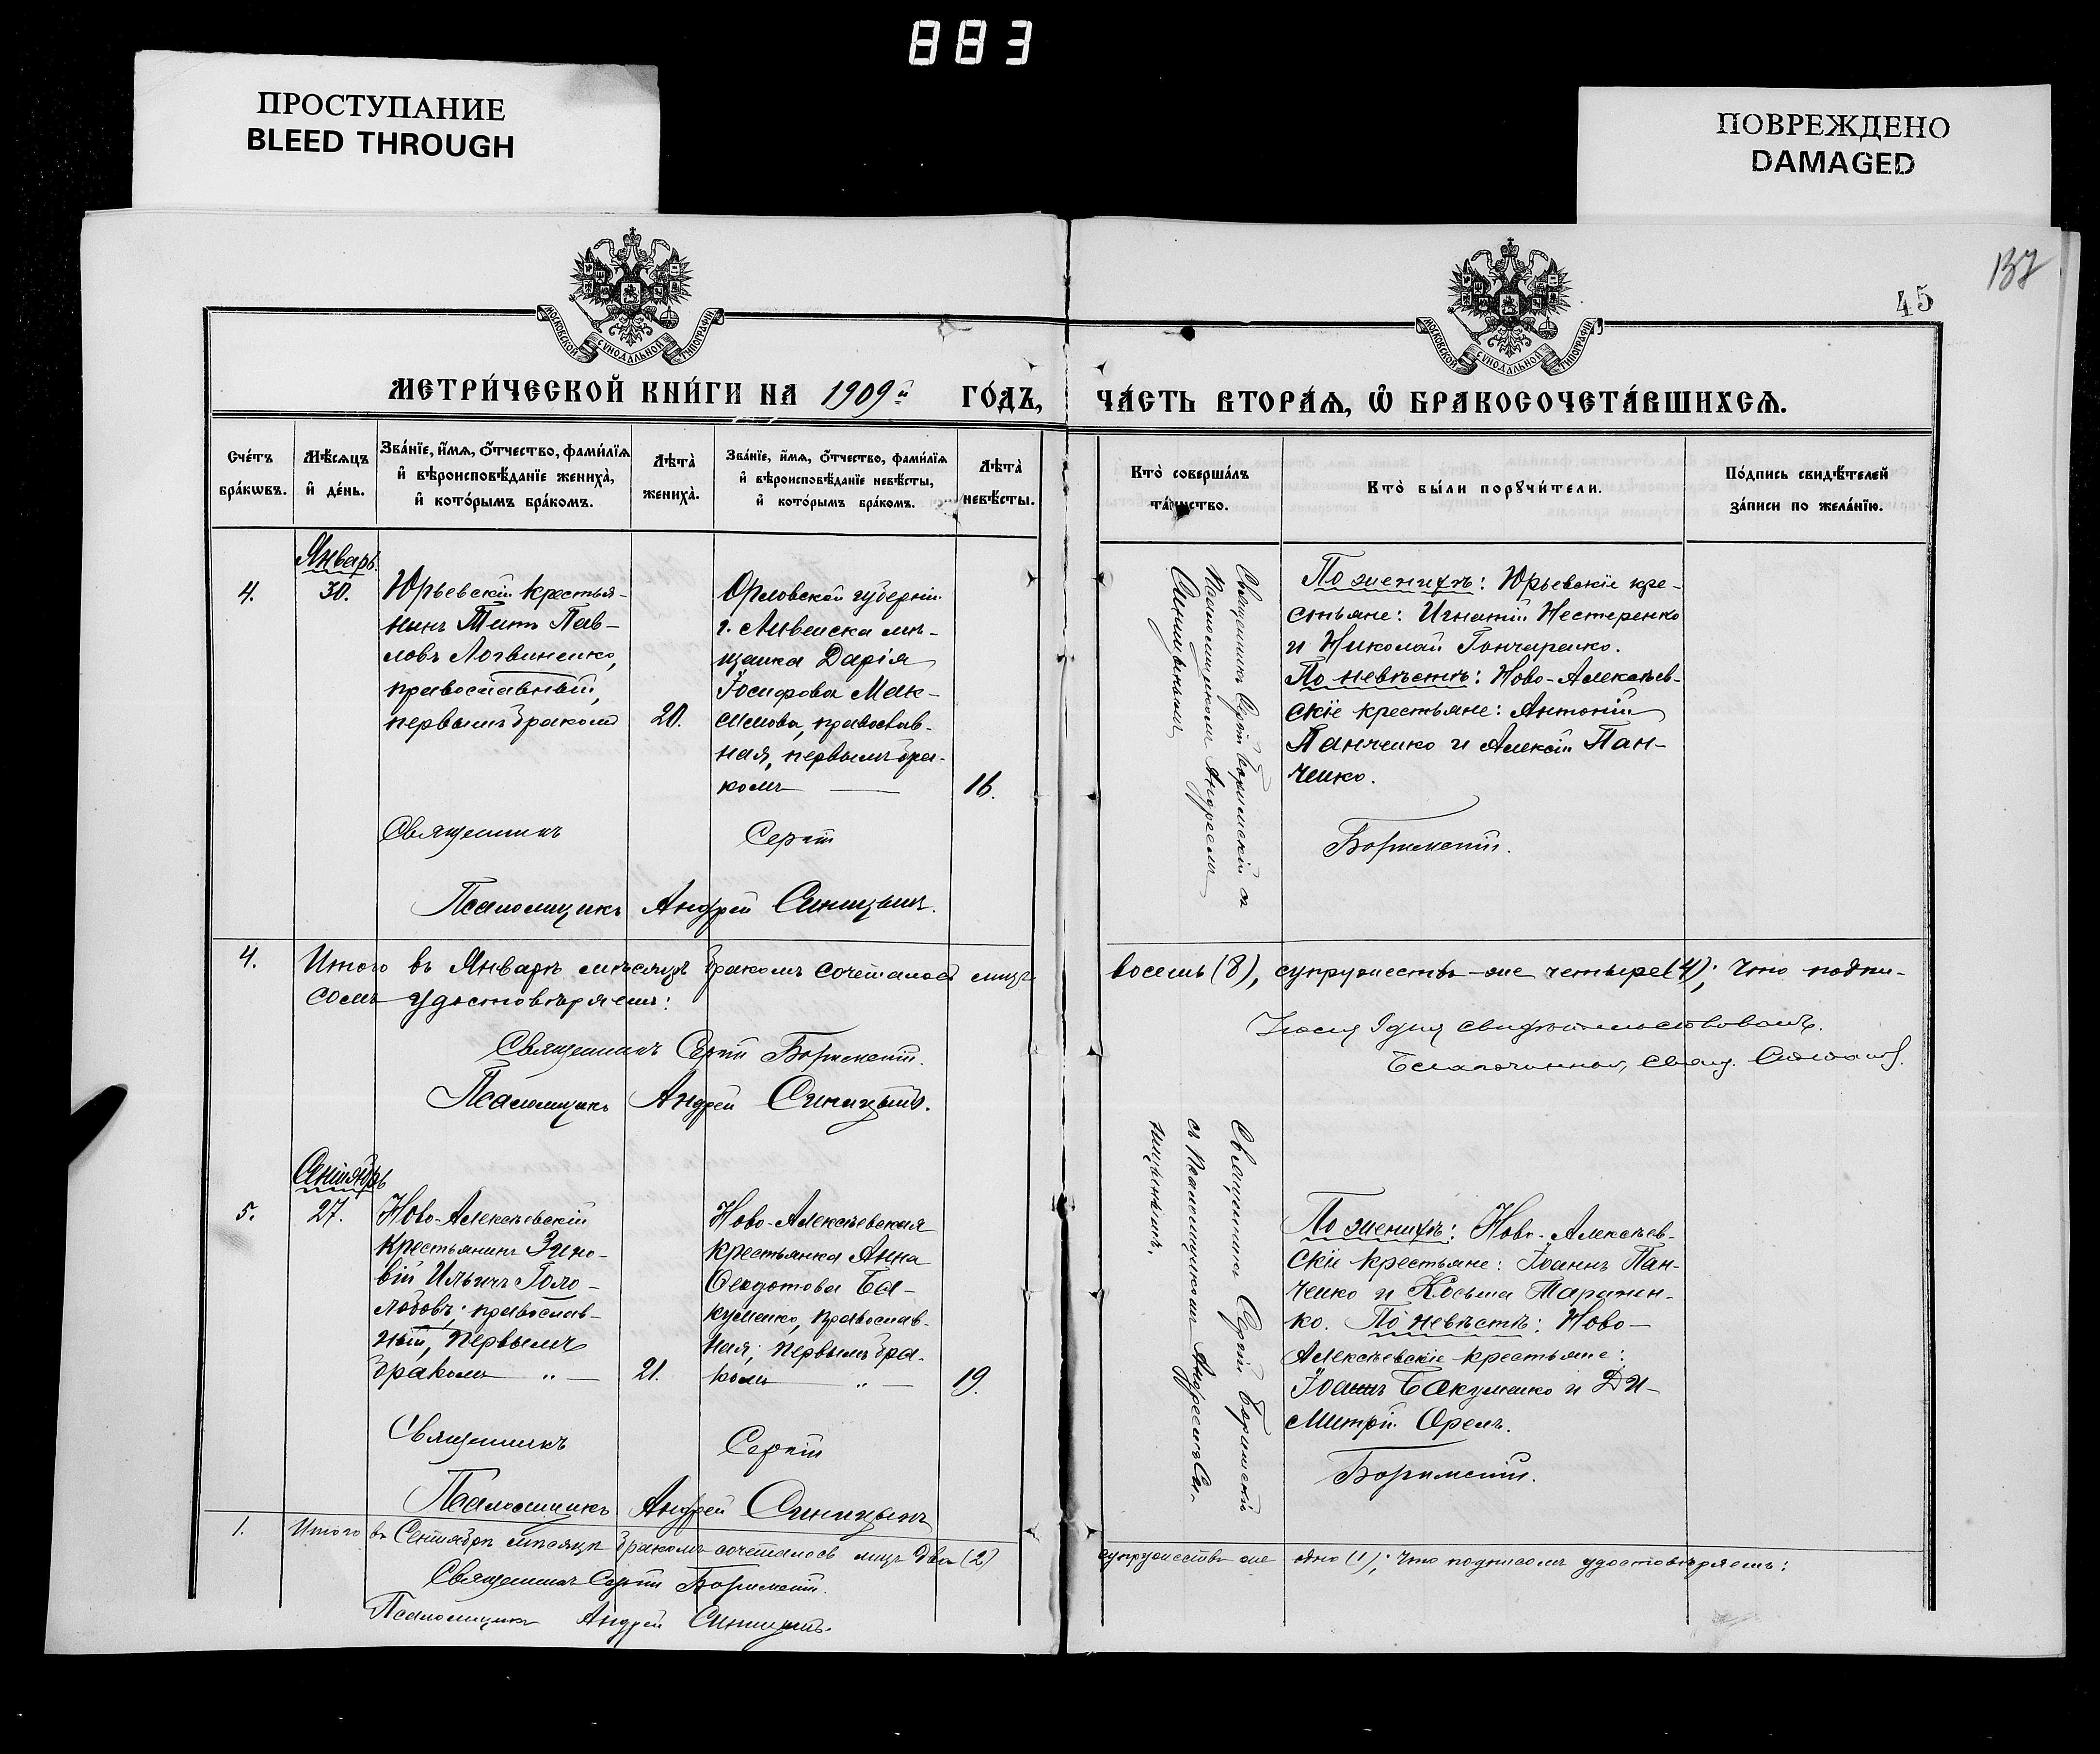 883
ПРОСТУПАНИЕ
BLEED THROUGH
ПОВРЕЖДЕНО
DAMAGED
137
45
МОСКОВСКОЙ СѴНОДАЛЬНОЙ ТИПОГРАФІИ
МОСКОВСКОЙ СѴНОДАЛЬНОЙ ТИПОГРАФІИ
МЕТРИ́ЧЕСКОЙ КНИ́ГИ НА 1909й ГО́ДЪ,
ЧА́СТЬ ВТОРА́Ѧ, Ѡ҆ БРАКОСОЧЕТА́ВШИХСѦ.
Сче́тъ
бра́кѡвъ.
Мѣ́сяцъ
и҆ де́нь.
Зва́нїе, и҆́мѧ, ѻ҆́тчество, фами́лїѧ
и҆ вѣроисповѣ́данїе жениха̀,
и҆ кото́рымъ бра́комъ.
Лѣта̀
жениха̀.
Зва́нїе, и҆́мѧ, ѻ҆́тчество, фами́лїѧ
и҆ вѣроисповѣ́данїе невѣ́сты,
и҆ кото́рымъ бра́комъ.
Лѣта̀
невѣ́сты.
Кто̀ соверша́лъ
та́инство.
Кто̀ бы́ли порꙋчи́тели.
По́дпись свидѣ́телей
за́писи по жела́нїю.
Январь.
4.
30.
Юрьевскій крестья-
нинъ Титъ Пав-
ловъ Логвиненко,
православный,
первымъ бракомъ
20.
Орловской губерніи
г. Ливенска мѣ-
щанка Дарія
Іосифова Мак-
симова, православ-
ная, первымъ бра-
комъ
16.
Священникъ Сергій Боримскій съ
Псаломщикомъ Андреемъ
Синицынымъ
По женихѣ: Юрьевскіе кре-
стьяне: Игнатій Нестеренко
и Николай Гончаренко.
По невѣстѣ: Ново-Алексѣев-
скіе крестьяне: Антоній
Панченко и Алексій Пан-
ченко.
Священникъ Сергій Боримскій.
Псаломщикъ Андрей Синицынъ.
4.
Итого въ Январѣ мѣсяцѣ бракомъ сочеталось лицъ восемь (8), супружествъ-же четыре (4); что подпи-
сомъ удостовѣряемъ:
Священникъ Сергій Боримскій.
Псаломщикъ Андрей Синицынъ.
свидѣтельствовалъ.
Благочинный, свящ.
Сентябрь
5.
27.
Ново-Алексѣевскій
крестьянинъ Зино-
вій Ильичъ Голо-
лобовъ, православ-
ный, первымъ
бракомъ — „ —
21.
Ново-Алексѣевская
крестьянка Анна
Ѳеодотова Ба-
куменко, православ-
ная, первымъ бра-
комъ — „ —
19.
Священникъ Сергій Боримскій
съ Псаломщикомъ Андреемъ Си-
ницынымъ.
По женихѣ: Ново-Алексѣев-
скіе крестьяне: Іоаннъ Пан-
ченко и Косьма Таранен-
ко. По невѣстѣ: Ново-
Алексѣевскіе крестьяне:
Іоаннъ Бакуменко и Ди-
митрій Орелъ.
Священникъ Сергій Боримскій.
Псаломщикъ Андрей Синицынъ
1.
Итого въ Сентябрѣ мѣсяцѣ бракомъ сочеталось лицъ два (2) супружествъ же одно (1); что подписомъ удостовѣряемъ:
Священникъ Сергій Боримскій.
Псаломщикъ Андрей Синицынъ.